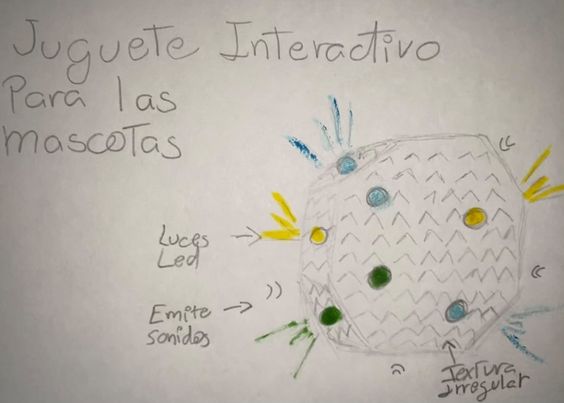 Juguete Interactivo
Para las
mascotas
Luces
Led
Emite
sonidos
Textura
Irregular